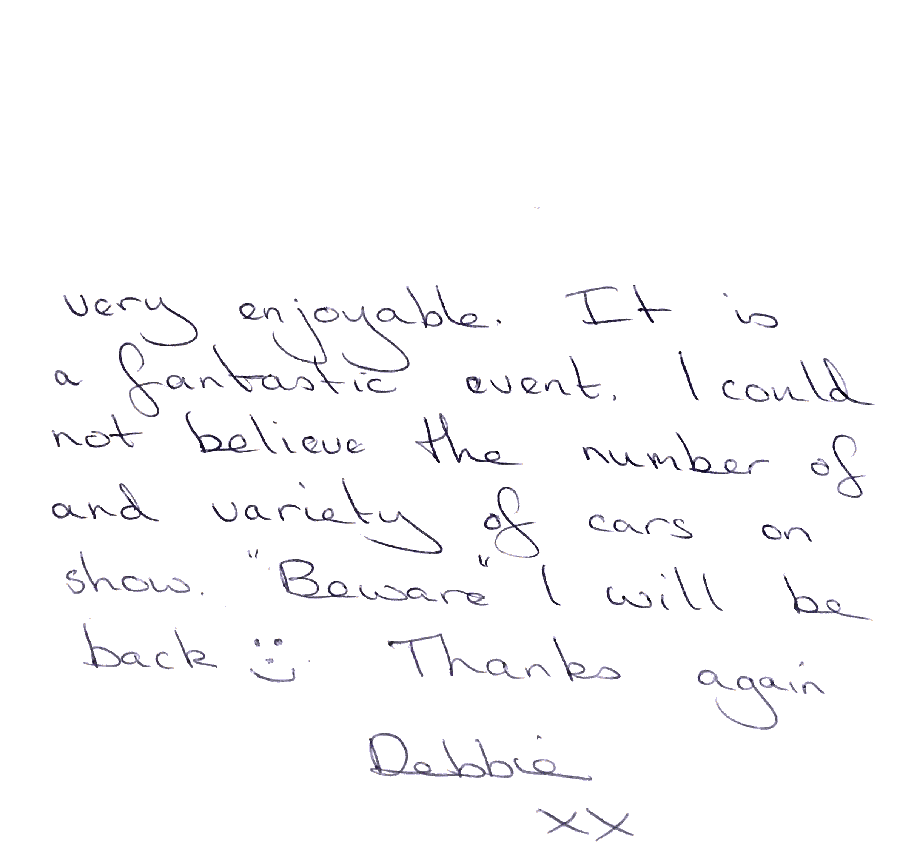 very enjoyable. It is
a fantastic event. I could
not believe the number of
and variety of cars on
show. "Beware" I will be
back :-) Thanks again
Debbie
xx